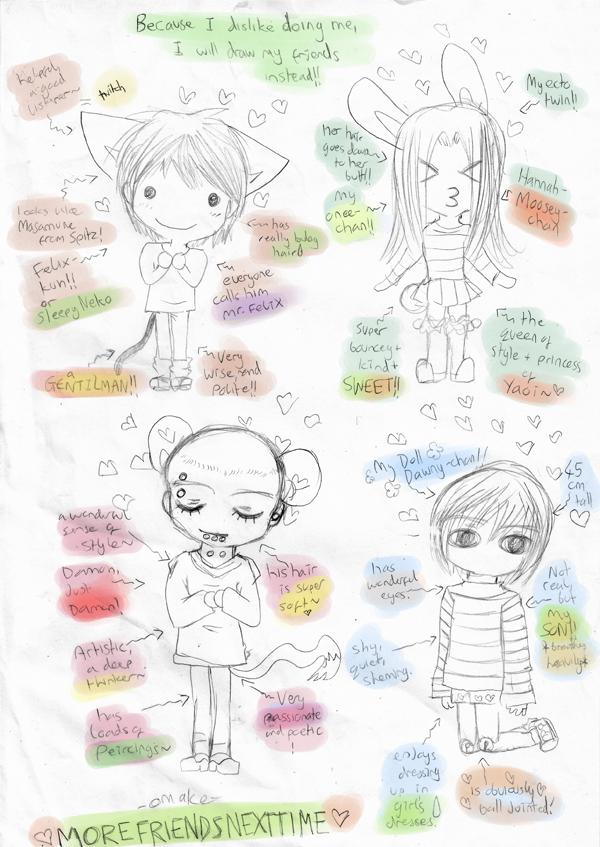 Because I dislike doing me,
I will draw my friends
instead!!
a good
listener~
twitch
looks like
Masamune
from Spitz!
Felix-
kun!! or
Sleepy Neko
a
GENTILMAN!!
has
really
hair!
everyone
calls him
mr. Felix
Very
wise and
polite!!
Her hair
goes down
to her
butt!!
my
onee-
chan!!
My ecto
twin!!
Hannah-
Moosey-
chan
Super
bouncey +
kind +
SWEET!!
the
queen of
style + princess
of
Yaoi~
a wonderful
sense of
style~
Damon,
Just
Damon!
Artistic,
a deep
thinker~
has
loads of
Peircings~
his hair
is super
soft~
Very
passionate
and poetic
!
My Doll
Dawny-chan!!
45
cm
tall
has
wonderful
eyes.
Not
real
but
my
SON!!
*breathing
heavily*
shy,
quiet,
enjoys
dressing
up in
girls
dresses.
is obviously
ball jointed!
-omake-
MORE FRIENDS NEXT TIME